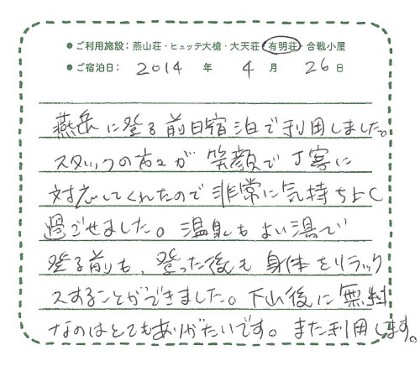 ●ご利用施設：燕山荘・ヒュッテ大槍・大天荘・有明荘・合戦小屋
●ご宿泊日：2014年4月26日
燕岳に登る前日宿泊で利用しました。
スタッフの方々が笑顔で丁寧に
対応してくれたので非常に気持ちよく
過ごせました。温泉もよい湯で
登る前も、登った後も身体をリラック
スすることができました。下山後に無料
なのはとてもありがたいです。また利用します。